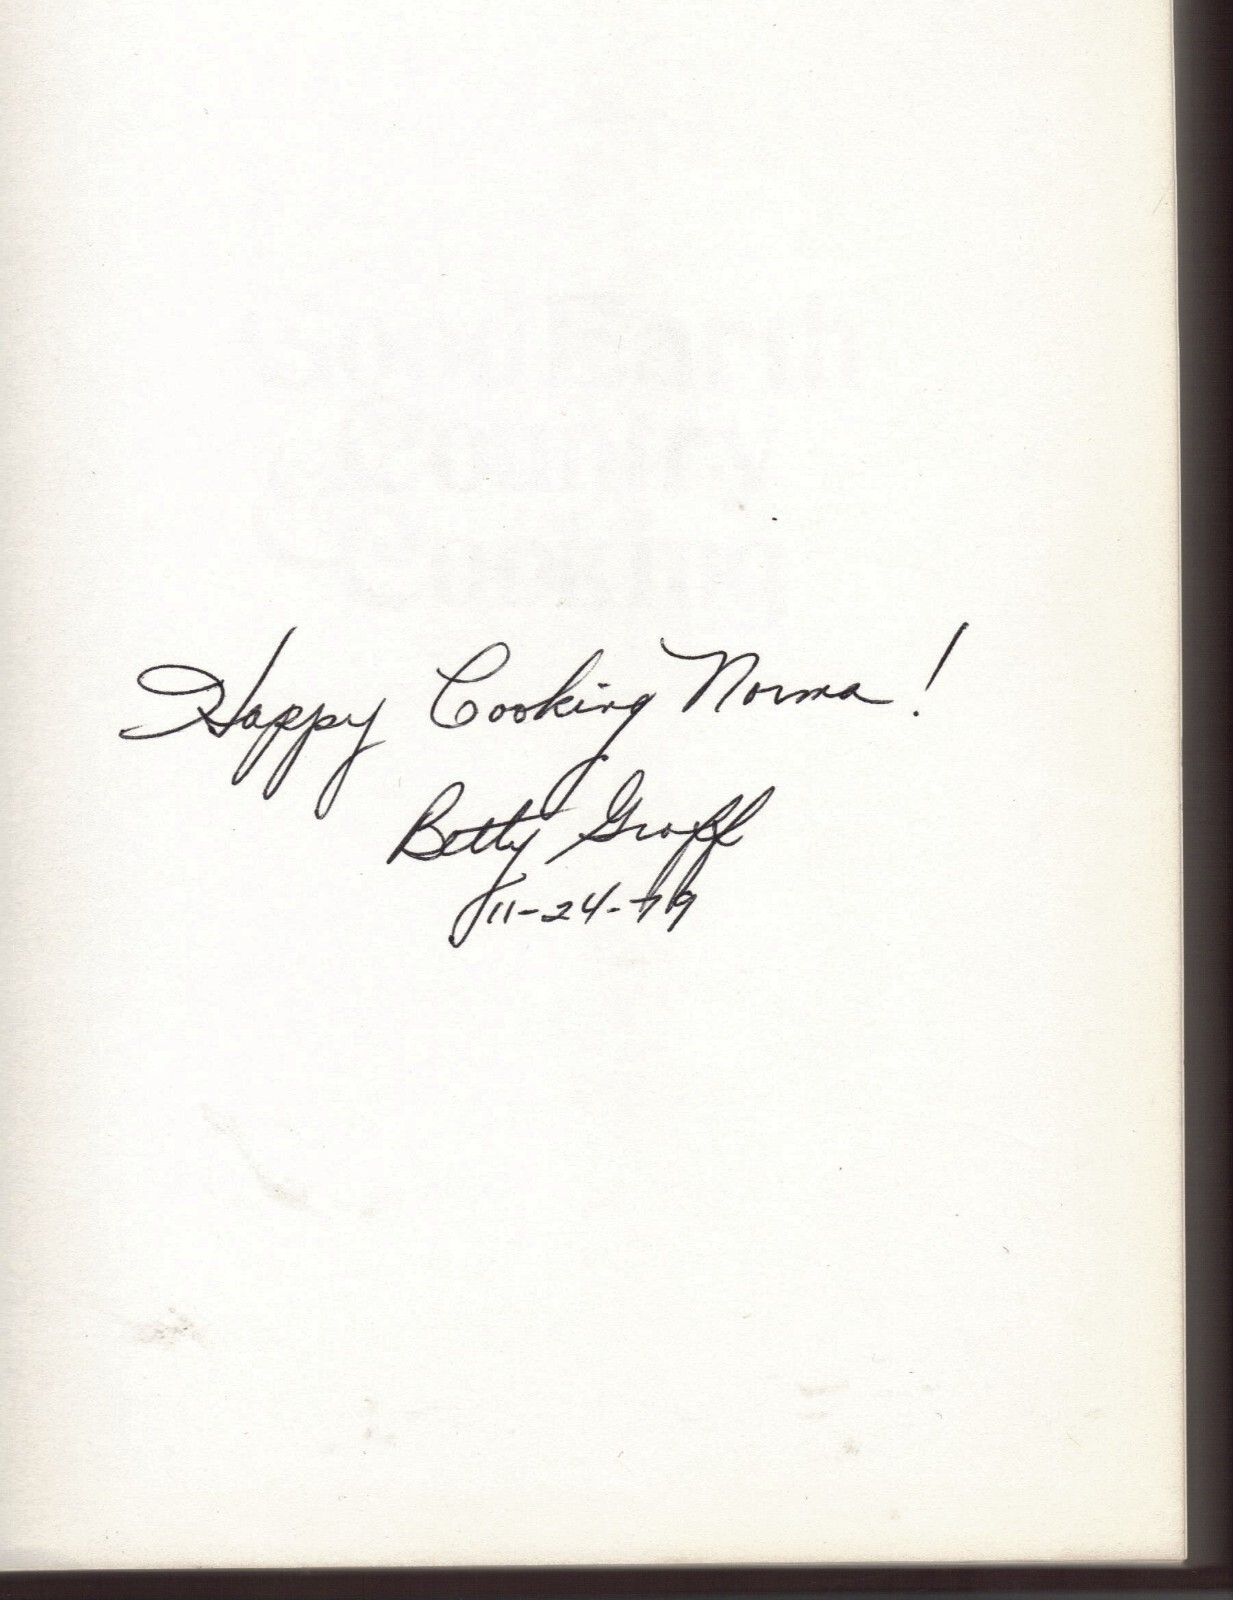 Happy Cooking Norma!
Betty Groff
11-24-79